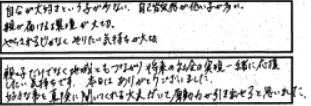 自分が大好きという子が少ない。自己肯定感が低い子が多い。
親が届ける環境が大切。
やらされるじゃなくやりたい気持ちが大切
親と子だけでなく地域ともつながり将来の社会の実現を一緒に応援
したい気持ちです。本日はありがとうございました。
好きな事を真摯に聞いてくれる大人がいて原動力が引き出せると思いました。